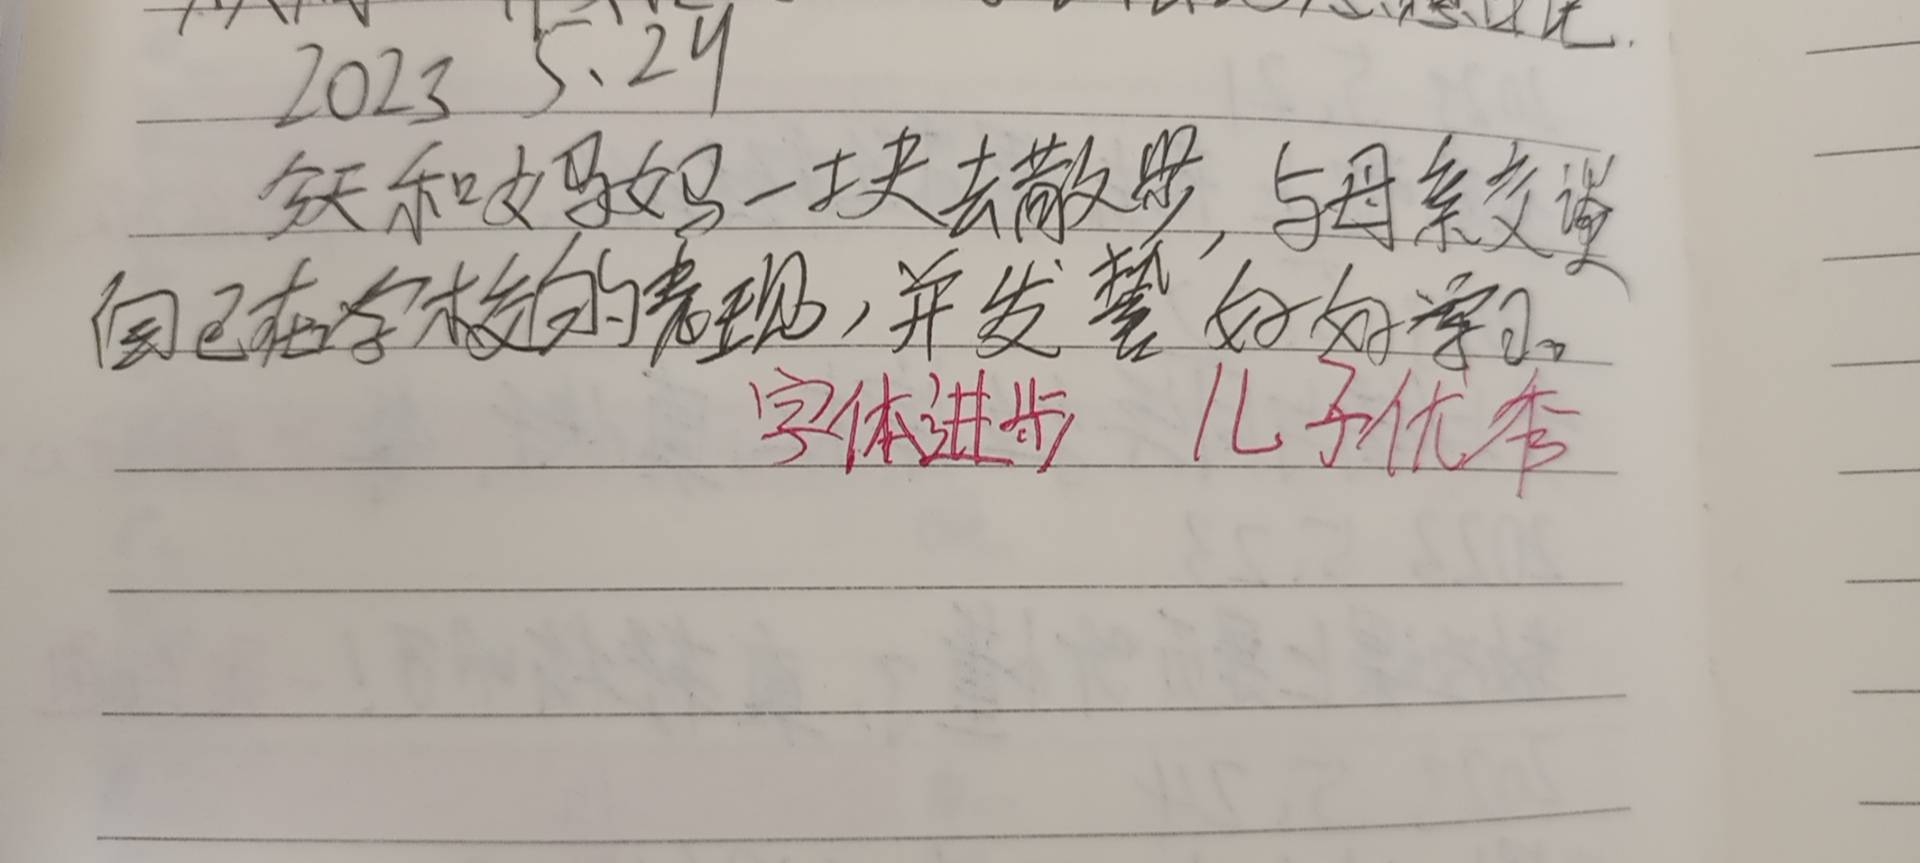 2023 5.24
今天和妈妈一块去散步，与母亲交谈
自己在学校的表现，并发誓好好学习。
字体进步 儿子优秀